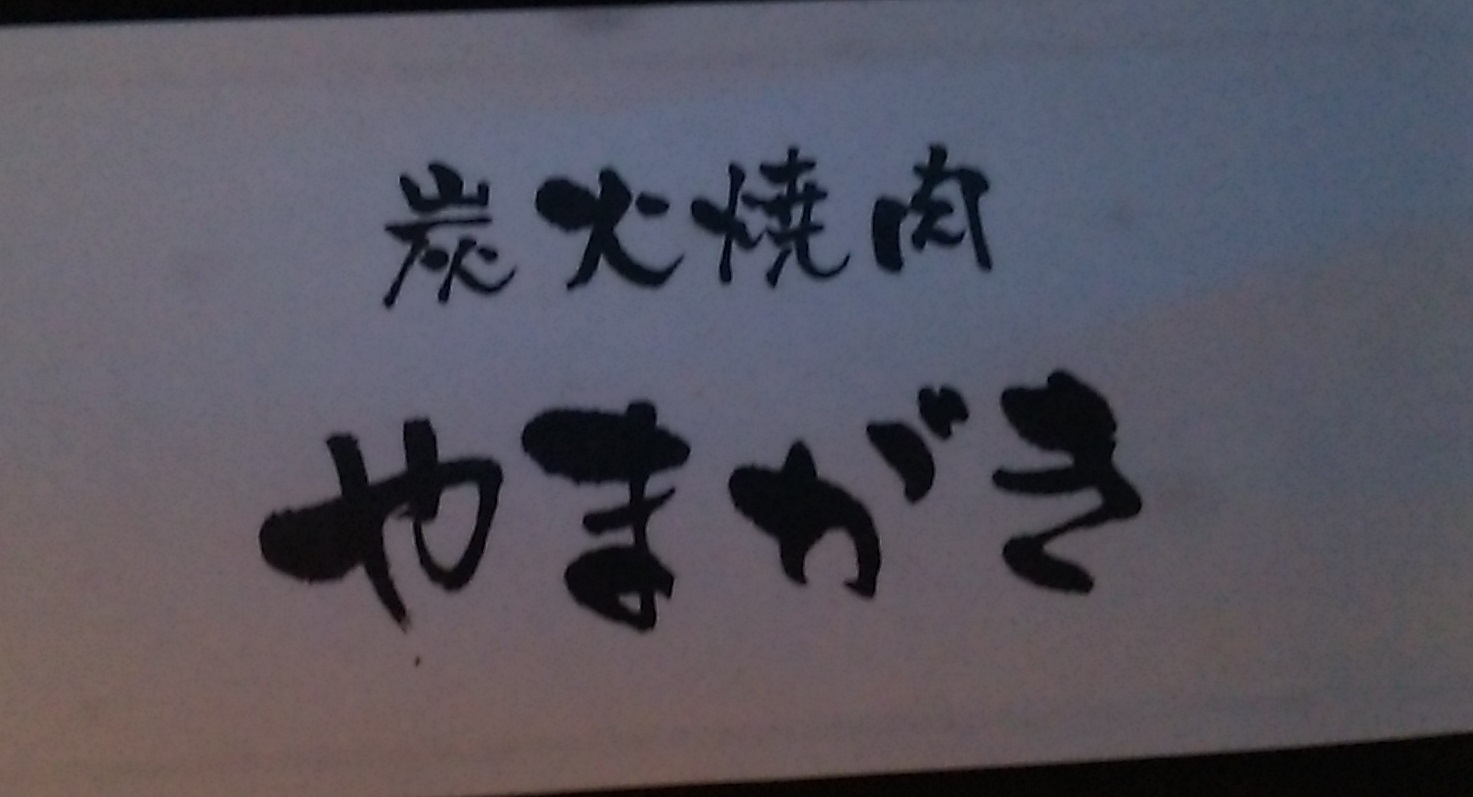 炭火焼肉
やまがき